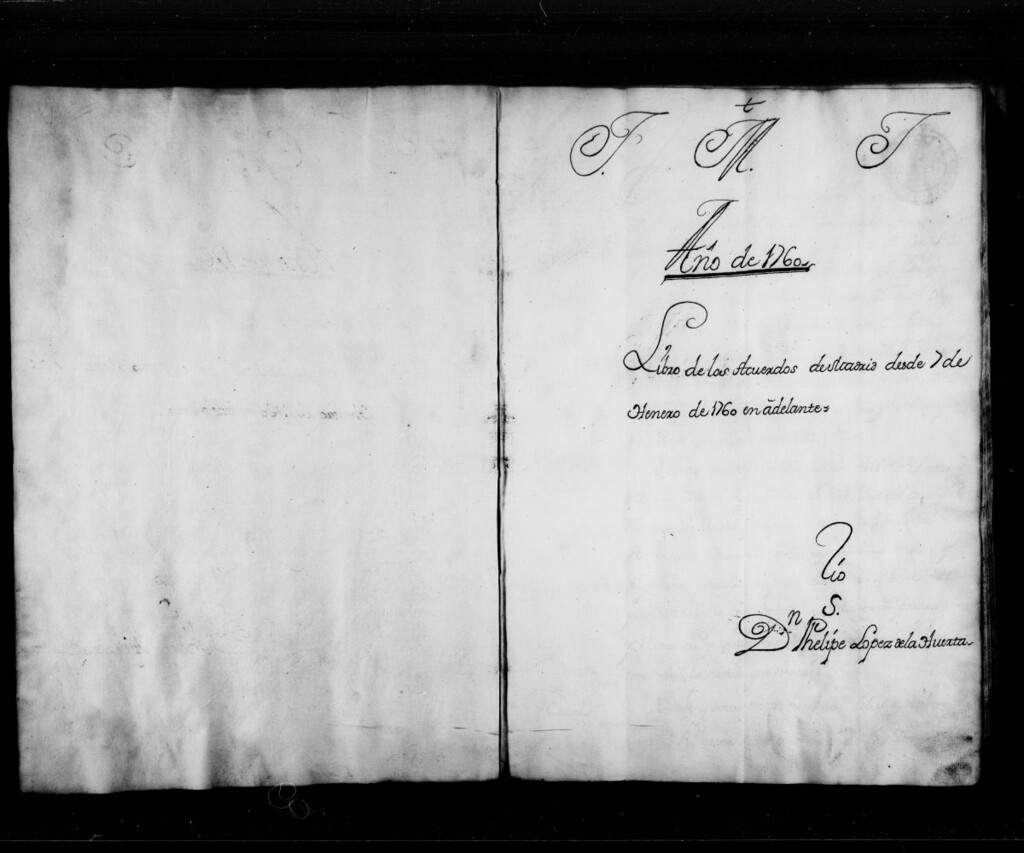 J. M. J
Año de 1760
Libro de los Acuerdos de Madrid desde 7 de
Henero de 1760 en adelante=
S.
Dn Phelipe Lopez de la Huerta